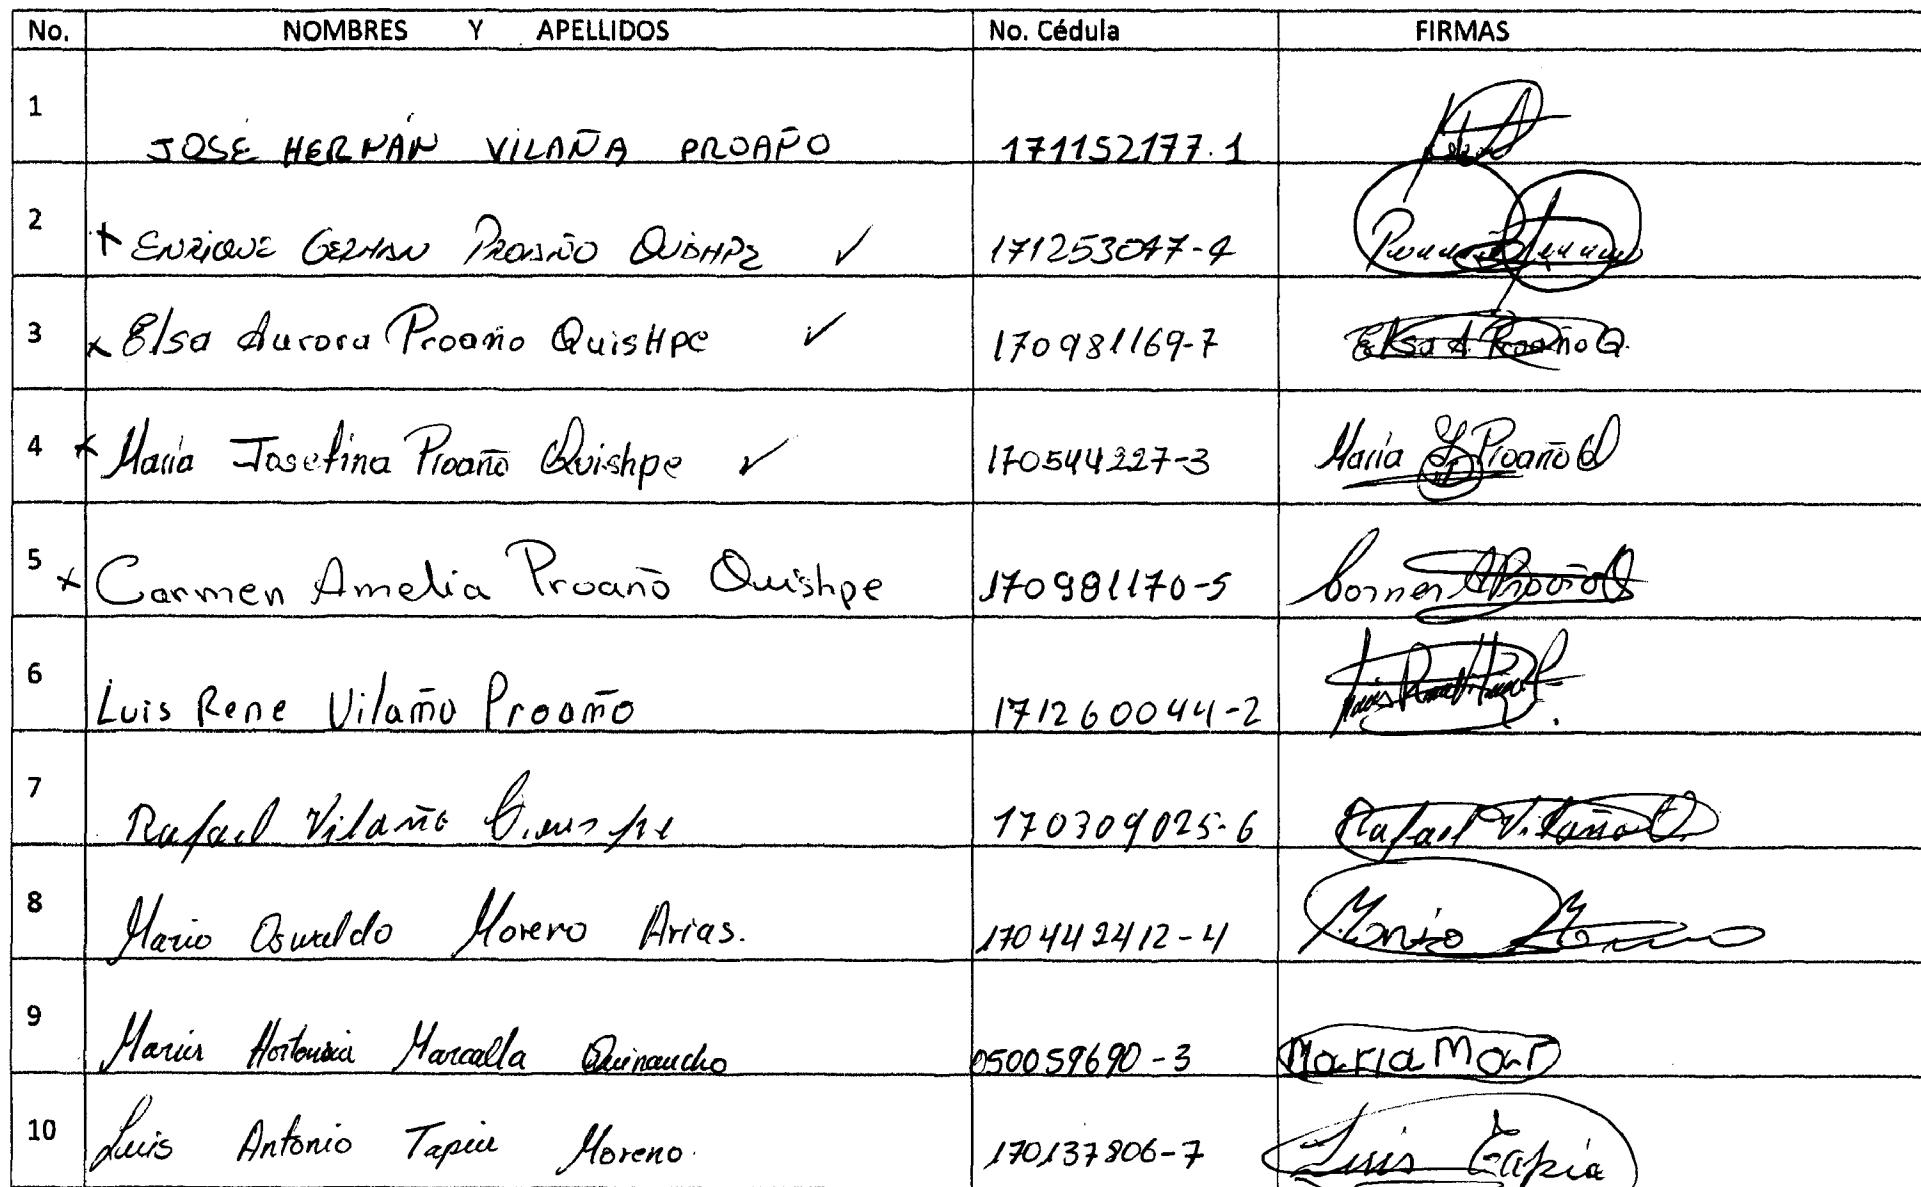 No. NOMBRES Y APELLIDOS No. Cédula FIRMAS
1 JOSÉ HERNÁN VILAÑA PROAÑO 171152177.1
2 x ENRIQUE GERMAN PROAÑO QUISHPE ✓ 171253047-4
3 x Elsa Aurora Proaño QuisHpe ✓ 170981169-7 Elsa A. Proaño Q.
4 x María Josefina Proaño Quishpe ✓ 170544227-3 María J Proaño Q
5 x Carmen Amelia Proaño Quishpe 170981170-5 Carmen A Proaño Q
6 Luis Rene Vilaño Proaño 171260044-2
7 Rafael Vilaño 170309025-6 Rafael Vilaña Q.
8 Mario Oswaldo Moreno Arias. 170442412-4 Mario Moreno
9 Maria Hortensia Marcalla Quinaucho 050059690-3 Maria Mar
10 Luis Antonio Tapia Moreno. 170137806-7 Luis Tapia